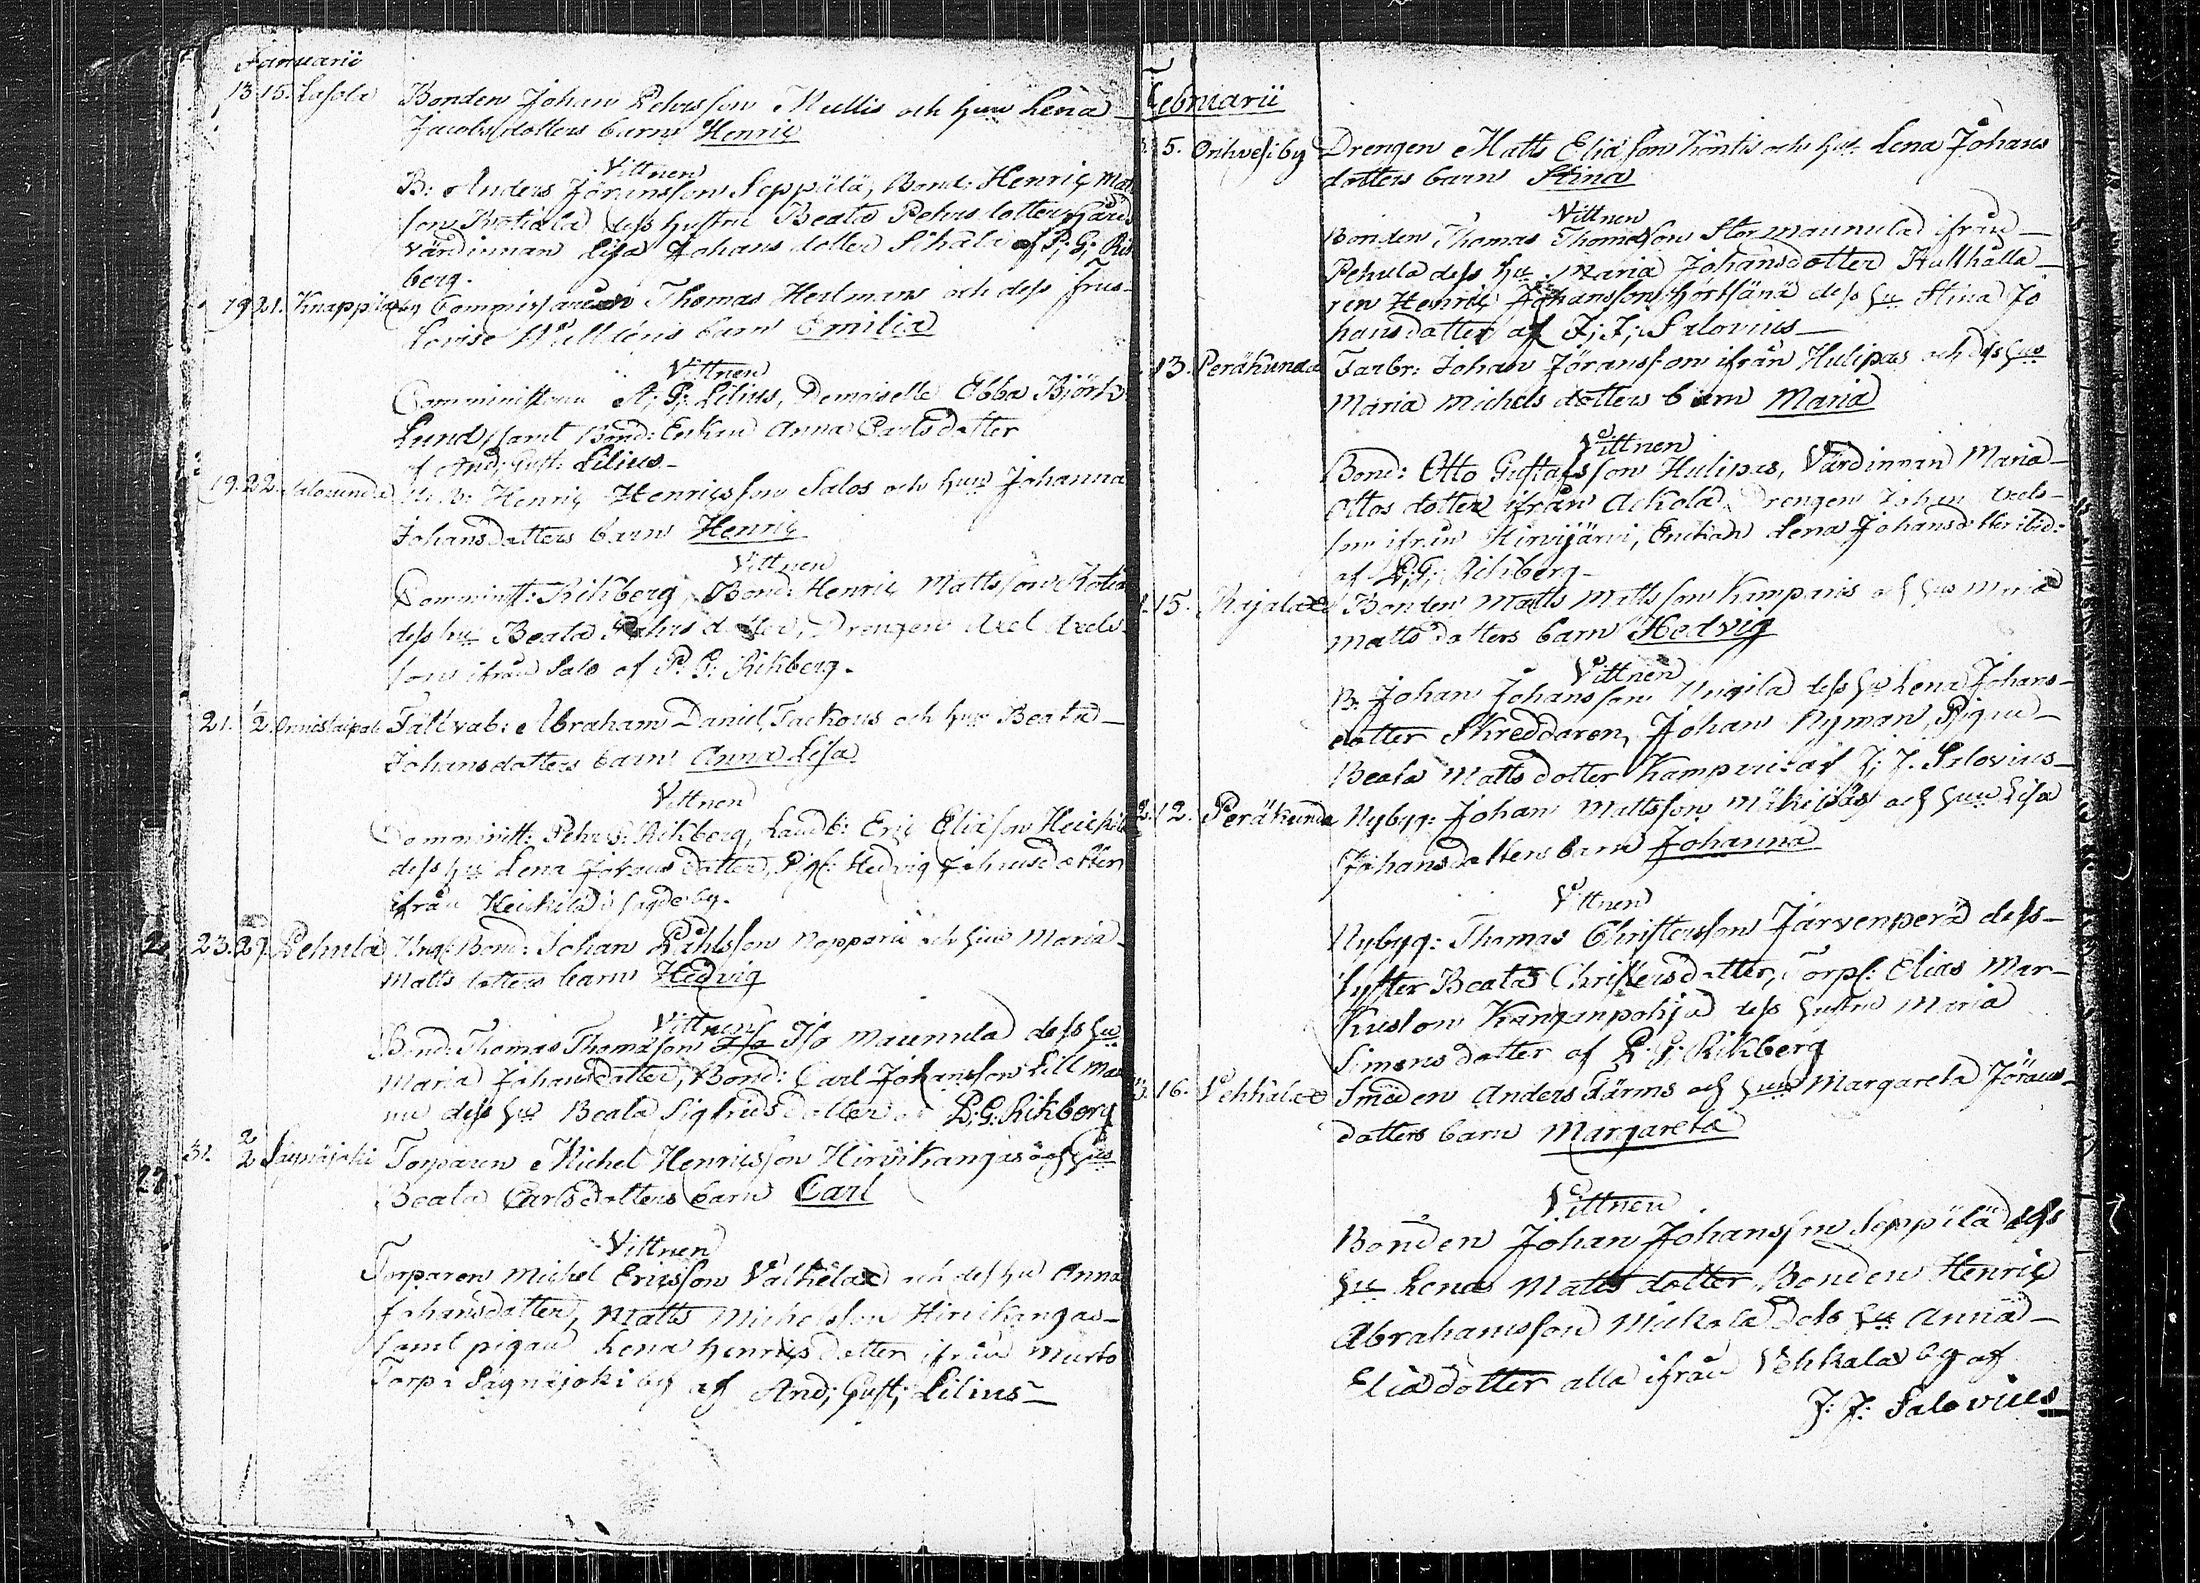 Januarii
13. 15. Lasola Bonden Johan Pehrsson Mullis och hu Lena
Jacobsdotters barn Henric
Vittnen
B: Anders Jöransson Seppälä, Bond: Henric Mat
son Kotiala dess hustru Beata Pehrs dotter
värdinnan Lisa Johans dotter af P: G: Rik
berg.
19. 21. Thomas Herlman och dess fru
Lovise barn Emilia
Vittnen
Comminist: A: G: Lilius, Demoiselle Ebba Björk
Lund, samt Bond: Enkan Anna Carlsdotter
af And: Gust: Lilius
19. 22. Henric Henricsson Salos och hu Johanna
Johansdotters barn Henric
Vittnen
Comminist: Rikberg, Bond: Henric Mattsson Kotia
dess hu Beata Pehrs dotter, Drengen Axel Axels
son ifrån Salo af P: G: Rikberg.
21. Fältvab: Abraham Daniel Tackous och hu Beata
Johansdotters barn Anna Lisa
Vittnen
Comminist: Pehr G: Rikberg, Landb: Eric Eliasson Heickilä
dess hu Lena Johansdotter, Pig: Hedvig Johansdotter
ifrån Heickilä i by.
23. 29. Pehula Bond: Johan Påhlsson och hu Maria
Matts dotters barn Hedvig
Vittnen
Bond: Thomas Thomasson Iso Maunula dess hu
Maria Johansdotter, Bond: Carl Johansson Lill Mau
nu dess hu Beata Sigfrids dotter af P: G: Rikberg
31. 2/2 Torparen Michel Henricsson Hirvikangas och hu
Beata Carlsdotters barn Carl
Vittnen
Torparen Michel Ericsson och dess hu Anna
Johansdotter, Matts Michelsson Hirvikangas
samt pigan Lena Henricsdotter ifrån Murto
Torp i by af And; Gust; Lilius
Februarii
5. Orihvesi by Drengen Matts Eliasson Köntis och hu Lena Johans
dotters barn Stina
Vittnen
Bonden Thomas Thomasson Stor Maunula ifrån
Pehula dess hu Maria Johansdotter
ren Henric Johansson dess hu Stina Jo
hansdotter af J; J; Salovius
13. Peräkunda Johan Jöransson ifrån Hulipas och dess hu
Maria Michels dotters barn Maria
Vittnen
Bond: Otto Gustafsson Hulipas, Värdinnan Maria
Ottos dotter ifrån Ackola Drengen Johan Axels
son ifrån Hirvijärvi, Enckan Lena Johansdotter ibid:
af P: G: Rikberg
15. Bonden Matts Mattsson Kamparis och hu Maria
Matts dotters barn Hedvig
Vittnen
B. Johan Johansson dess hu Lena Johans
dotter Skreddaren Johan Nyman, Pigan
Beata Matts dotter af J; J. Salovius
12. Peräkunda Nybyg: Johan Mattsson och hu Lisa
Johansdotters barn Johanna
Vittnen
Nybyg: Thomas Christersson Järvenperä dess
Syster Beata Christersdotter, Torp: Elias Mar
kusson Kangenpohja dess hustru Maria
Simonsdotter af P: G: Rikberg
16. Vehkala Smeden Anders Färms och hu Margareta Jörans
dotters barn Margareta
Vittnen
Bonden Johan Johansson Seppälä dess
hu Lena Matts dotter Bonden Henric
Abrahamsson Mickola dess hu Anna
Elia dotter alla ifrån Vehkala by af
J: J: Salovius